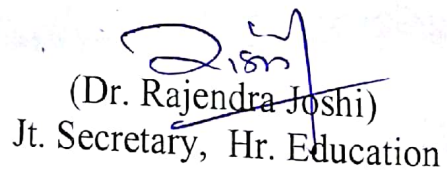 (Dr. Rajendra Joshi)
Jt. Secretary, Hr. Education